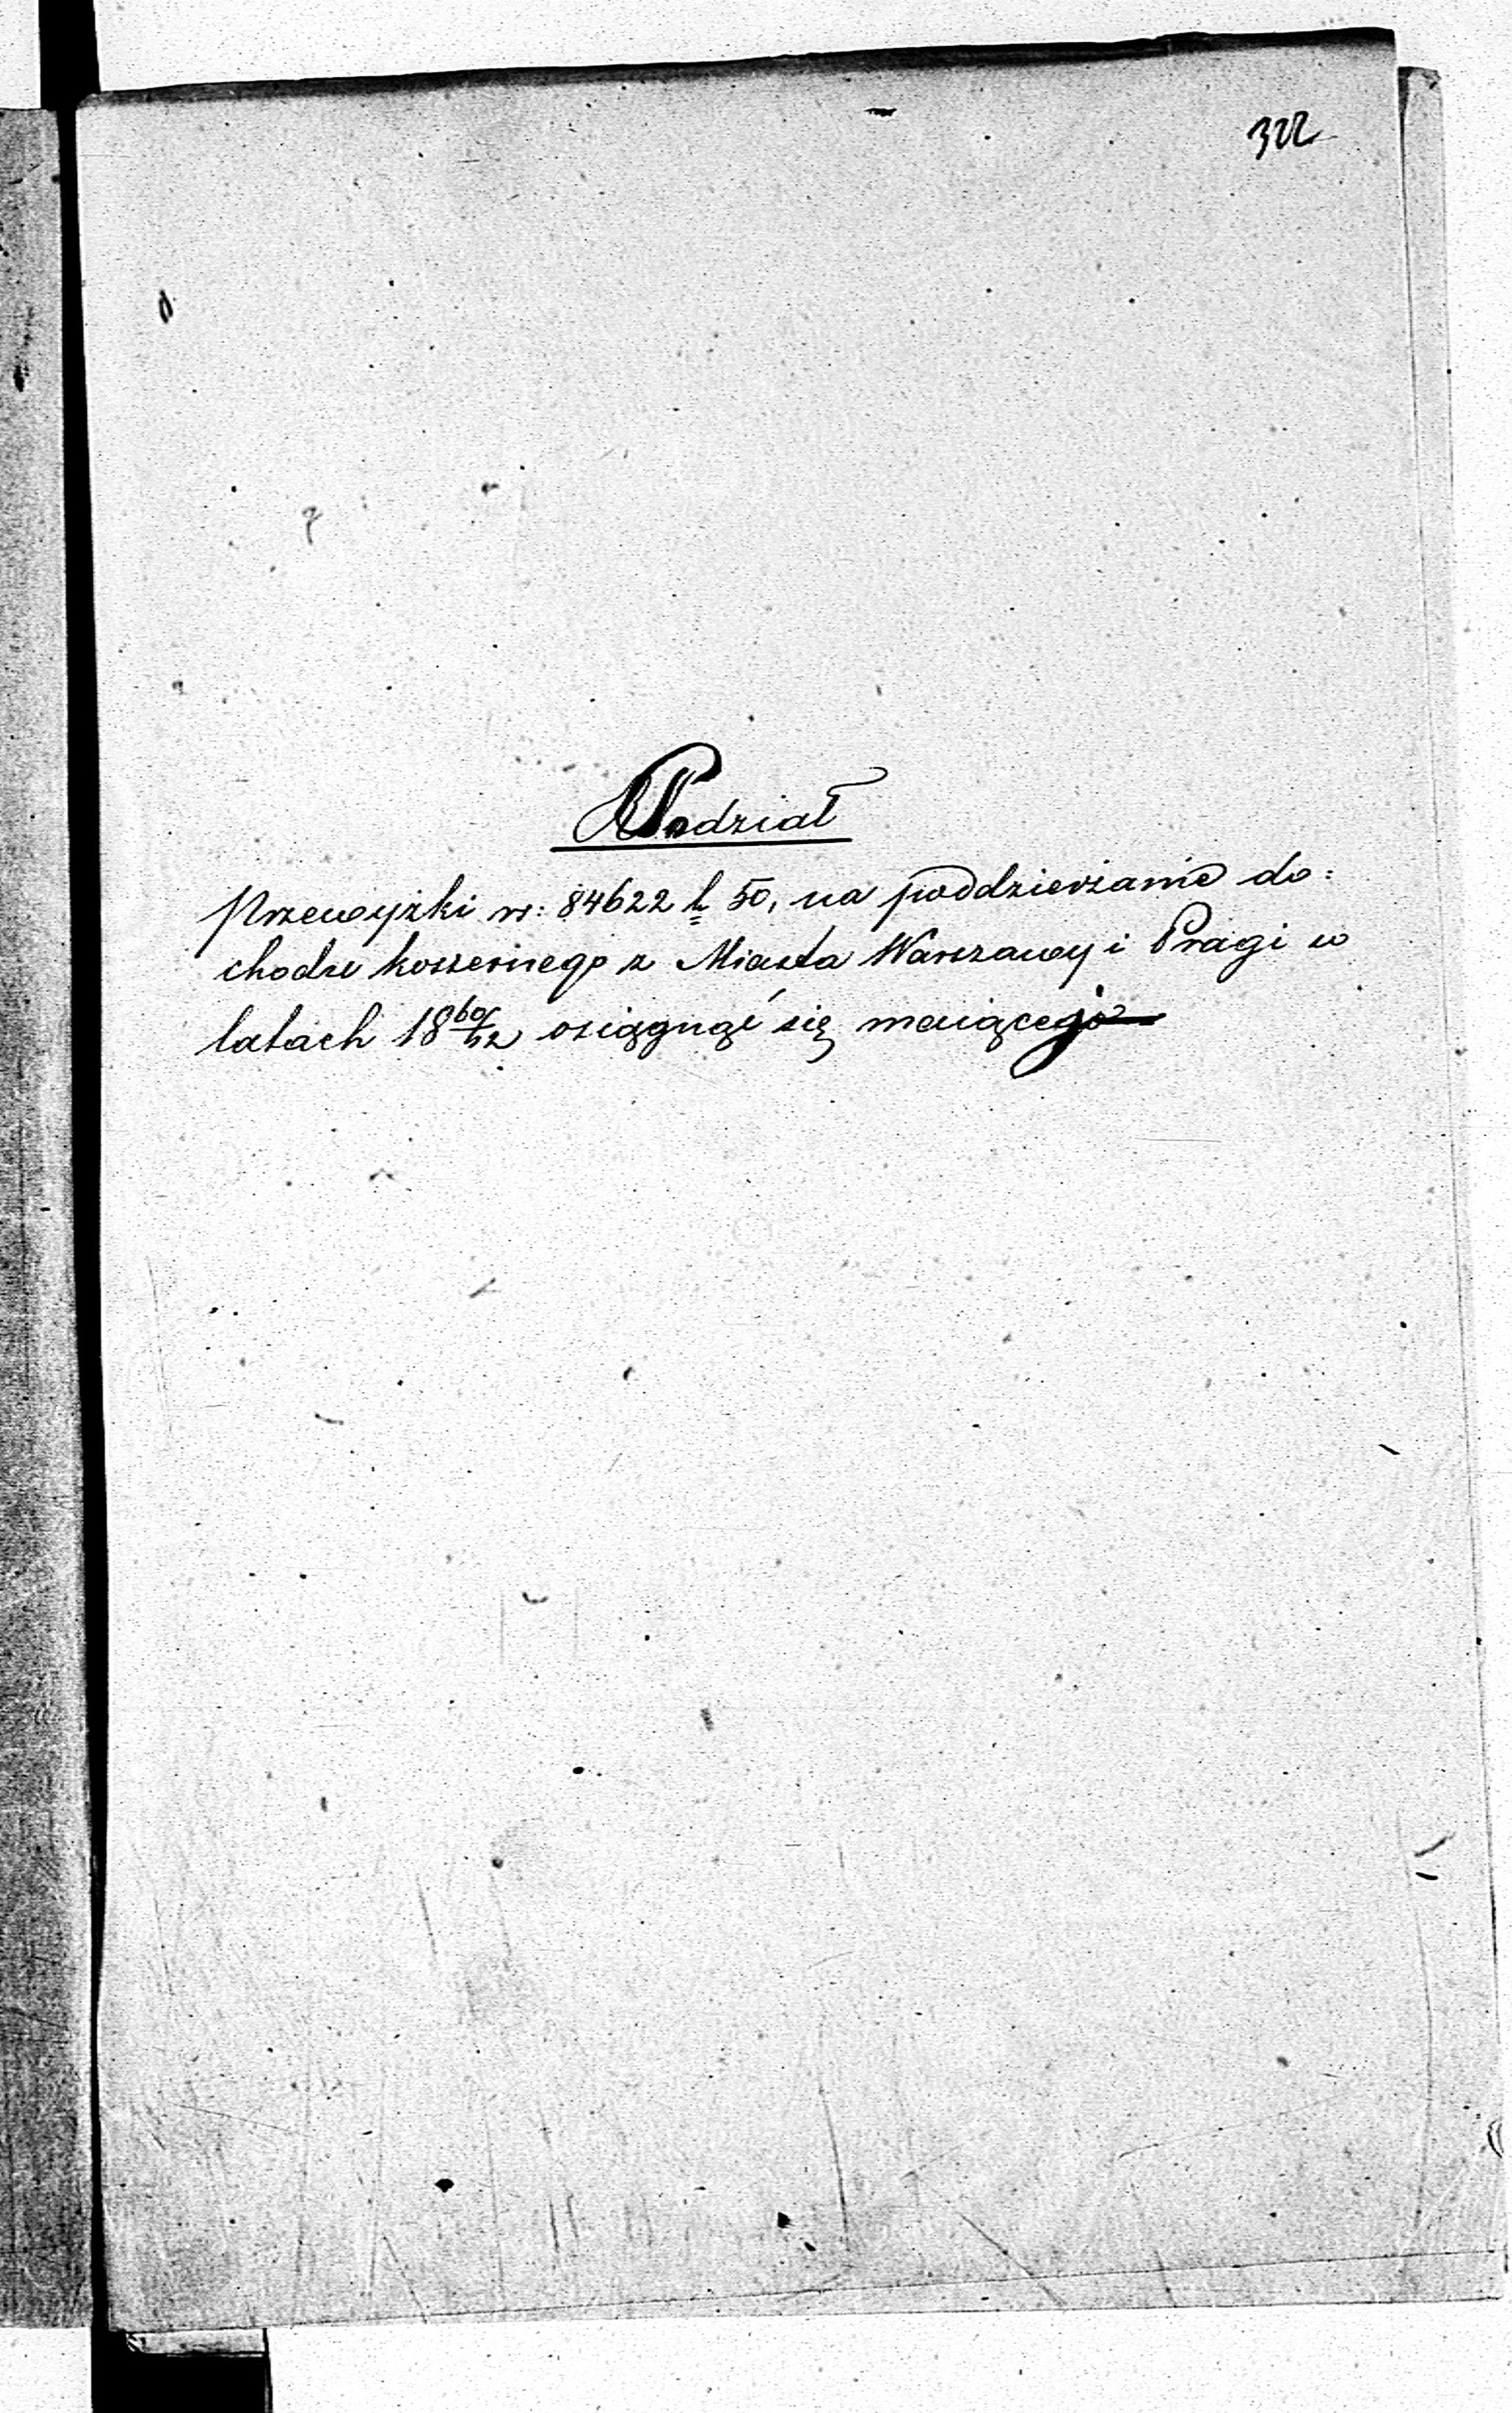 322
Podział
Przewyżki rs: 84622 k 50, na poddzierżawie do=
chodu koszernego z Miasta Warszawy i Pragi w
latach 18 60/62 osiągnąć się maiącego